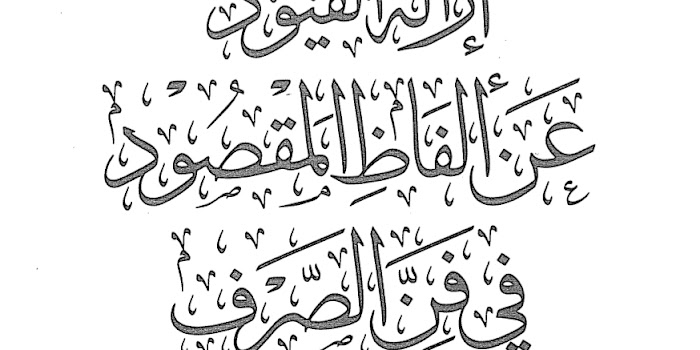 إزالة القيود
عَنْ ألفَاظِ المَقْصُود
في فَنِّ الصَّرف